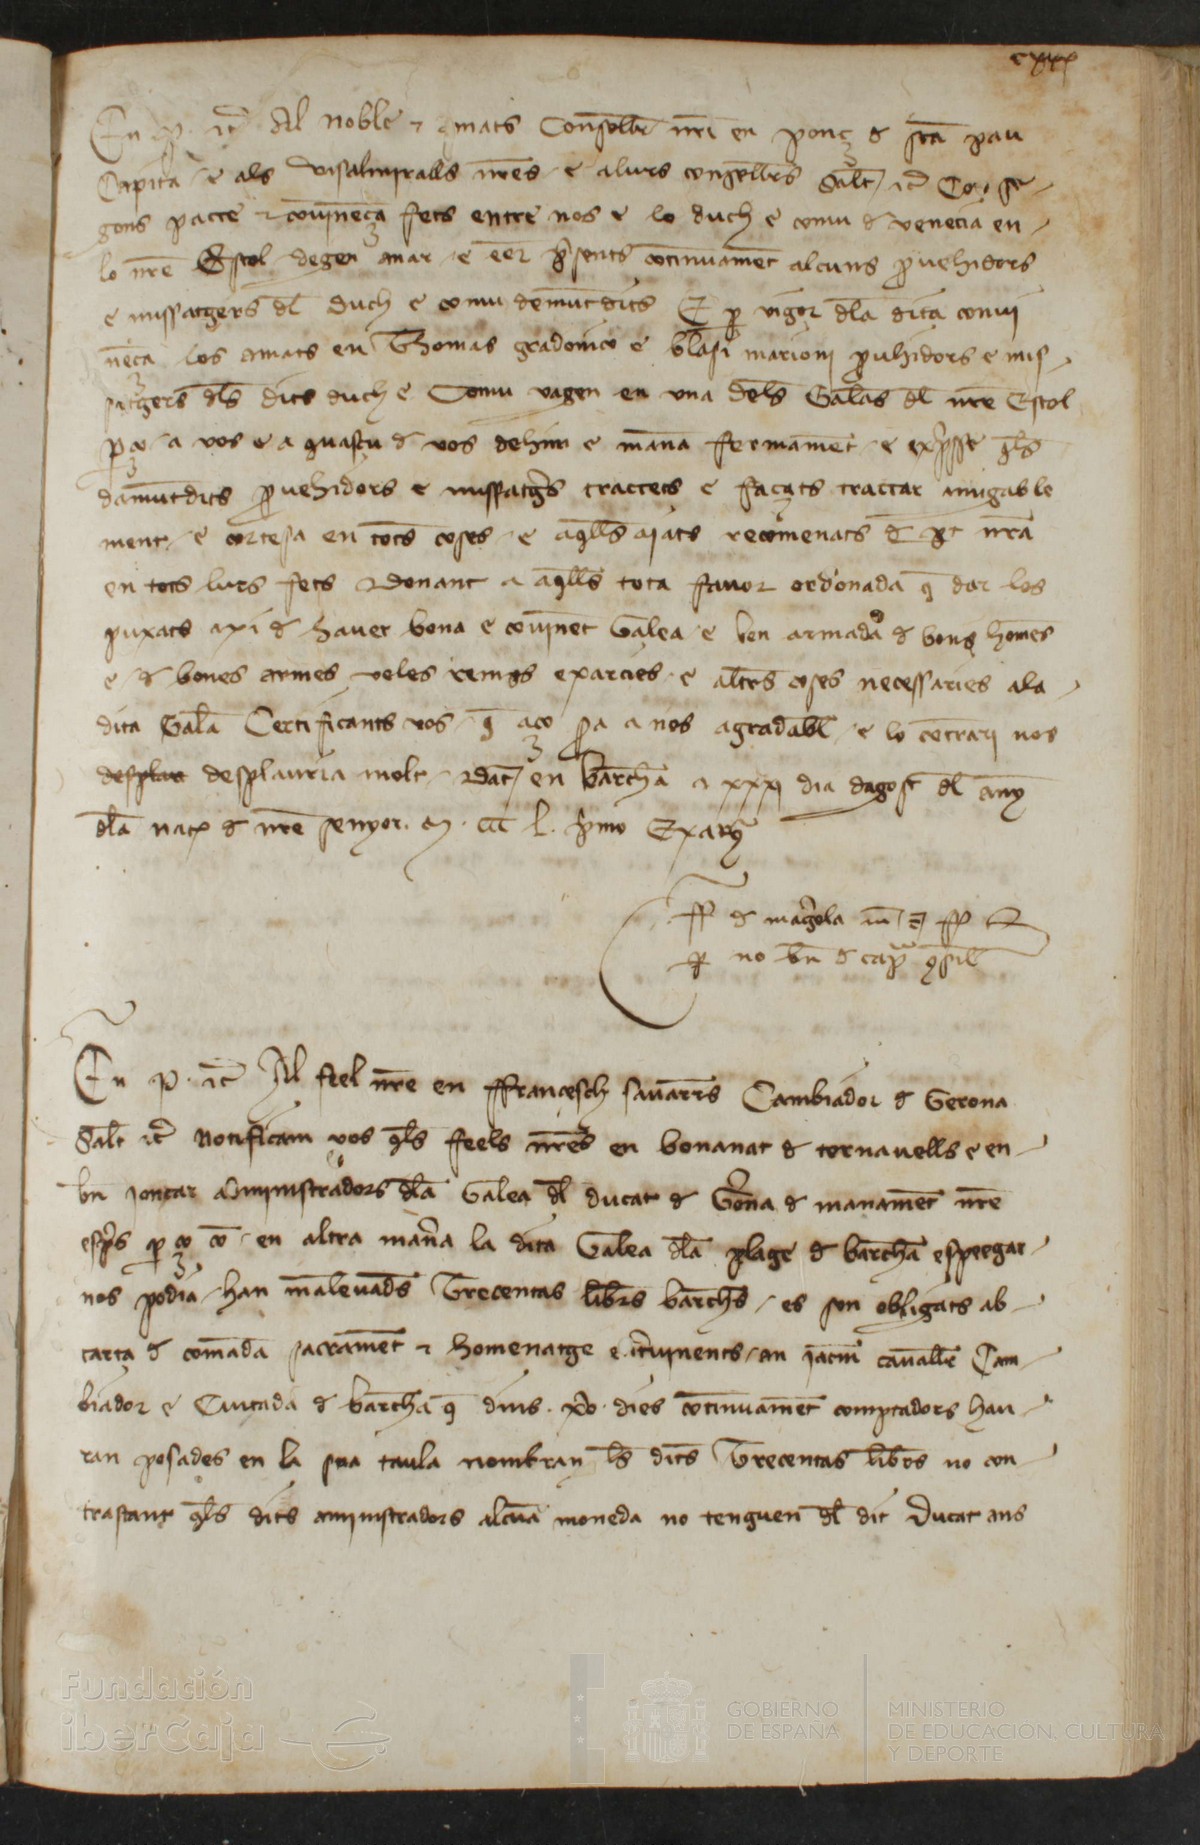 cxxx
En P. etc. Al noble e amats Consellr nre en ponç d sta pau
Capita e als visalmiralls nres e alurs consellrs Salt etc Com se
gons patte e covinença fets entre nos e lo duch e comu d venecia en
lo nre Estol degen anar e eer psents continuament alcuns pvehidors
e missatgers dl duch e comu demuntdits E p vigor dla dita convi
nença los amats en Thomas gradonico e blasi marioni pvehidors e mis
satgers dls dits duch e Comu vagen en una dels Galeas dl nre Estol
p ço a vos e a quascu d vos dehim e mana fermament e expsse qls
damuntdits pvehidors e missatgs tractets e façats tractar amigable
ment e cortesa en tots coses e aqlls aiats recomenats d pt nra
en tots lurs fets Donant a aqlls tota favor ordonada q dar los
puxats axi d haver bona e covinent Galea e ben armada d bons homes
e d bones armes veles rems exarcies e altrs coses necessaries ala
dita Galea Certificants vos q aço sa a nos agradabl e lo contrari nos
desplau desplauria molt Dat en barchna a xxxi dia dagost dl any
dla nat d nre senyor M CCC L pmo Exa
ff d magola
p no bn d cap consil
En P. etc. Al feel nre en ffrancesch savarrs Cambiador d Gerona
Salt etc Notificam vos qls feels nres en bonanat d tornavells e en
bn joncar administradors dla Galea dl ducat d Gona d manament nre
esps p ço co en altra mana la dita Galea dla plage d barchna espeegar
nos podia han malevads Trecentas libres barchs es son obligats ab
carta d comada sacrament e homenatge e itvinents an jacm cavalle Cam
biador e Ciutada d barchna q dins xv dies continuament comptadors hau
ran posades en la sua taula nombran ls dits Trecentas librs no con
trastant qls dits aministradors alcuna moneda no tenguen dl dit Ducat ans
Fundación
iberCaja
GOBIERNO
DE ESPAÑA
MINISTERIO
DE EDUCACIÓN, CULTURA
Y DEPORTE